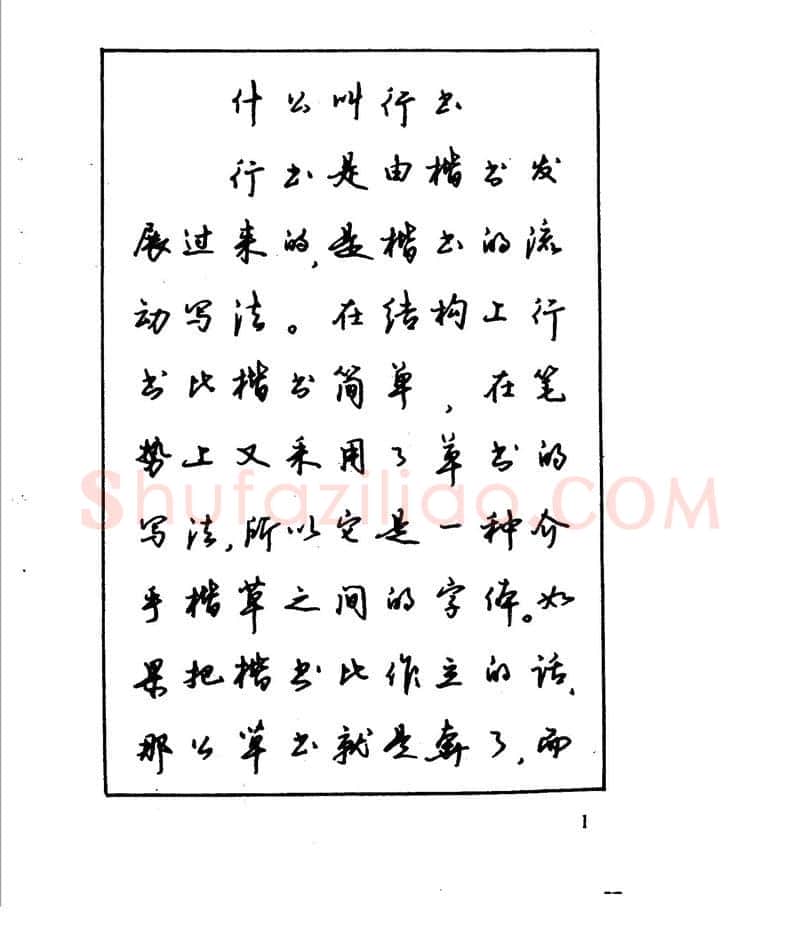 什么叫行书
行书是由楷书发
展过来的,是楷书的流
动写法。在结构上行
书比楷书简单,在笔
势上又采用了草书的
写法,所以它是一种介
乎楷草之间的字体。如
果把楷书比作立的话,
那么草书就是奔了,而
Shufaziliao.COM
1